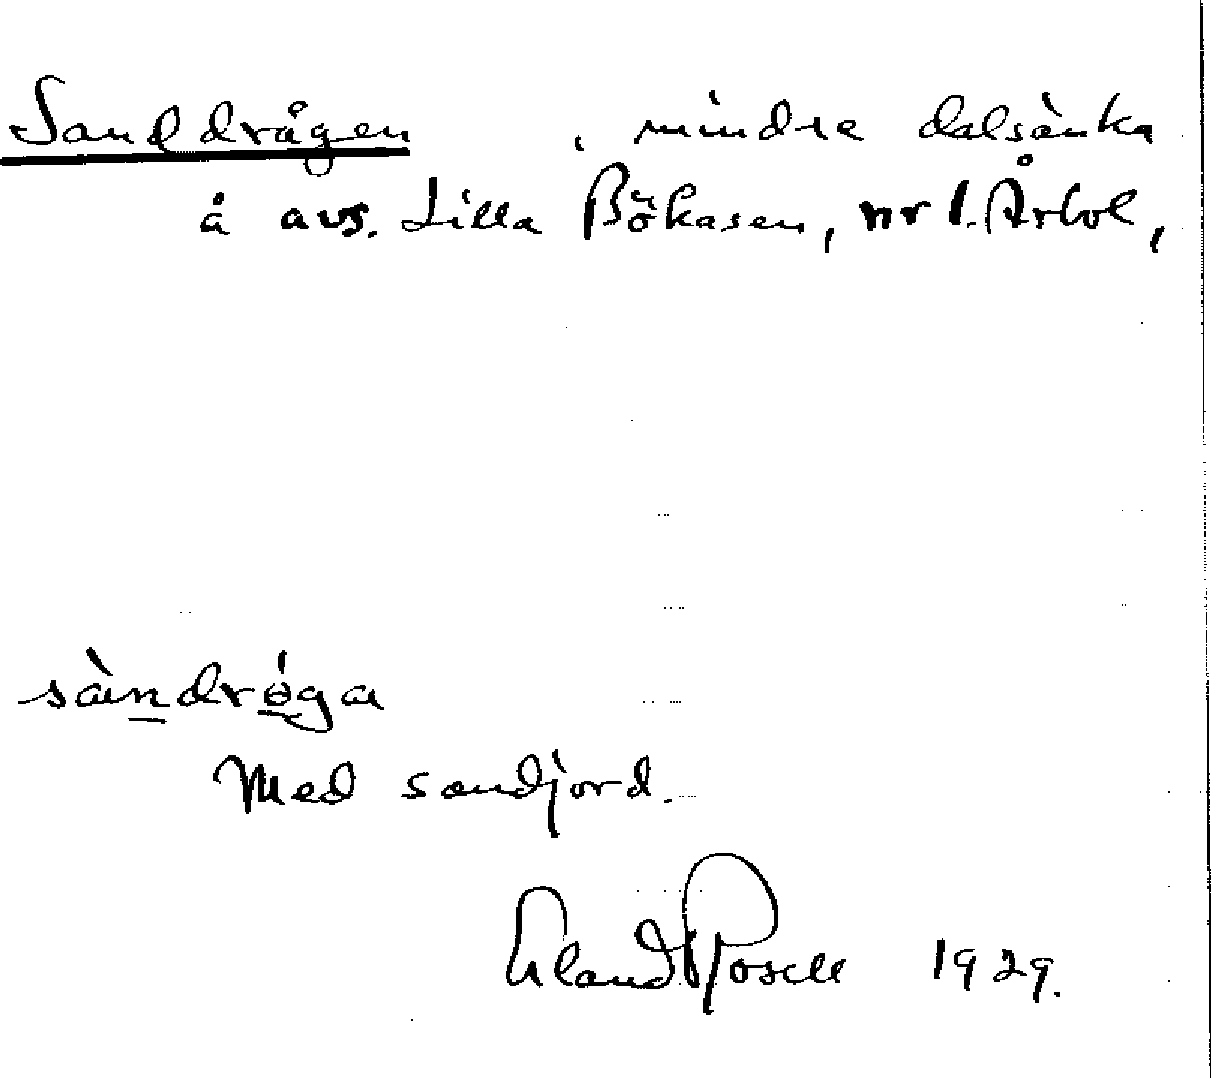 Sanddrågen, mindre dalsänka
å avs. Lilla Bökasen, nr 1. Årbol,
sàndrǿga
Med sandjord.
Erland Rosell 1929.